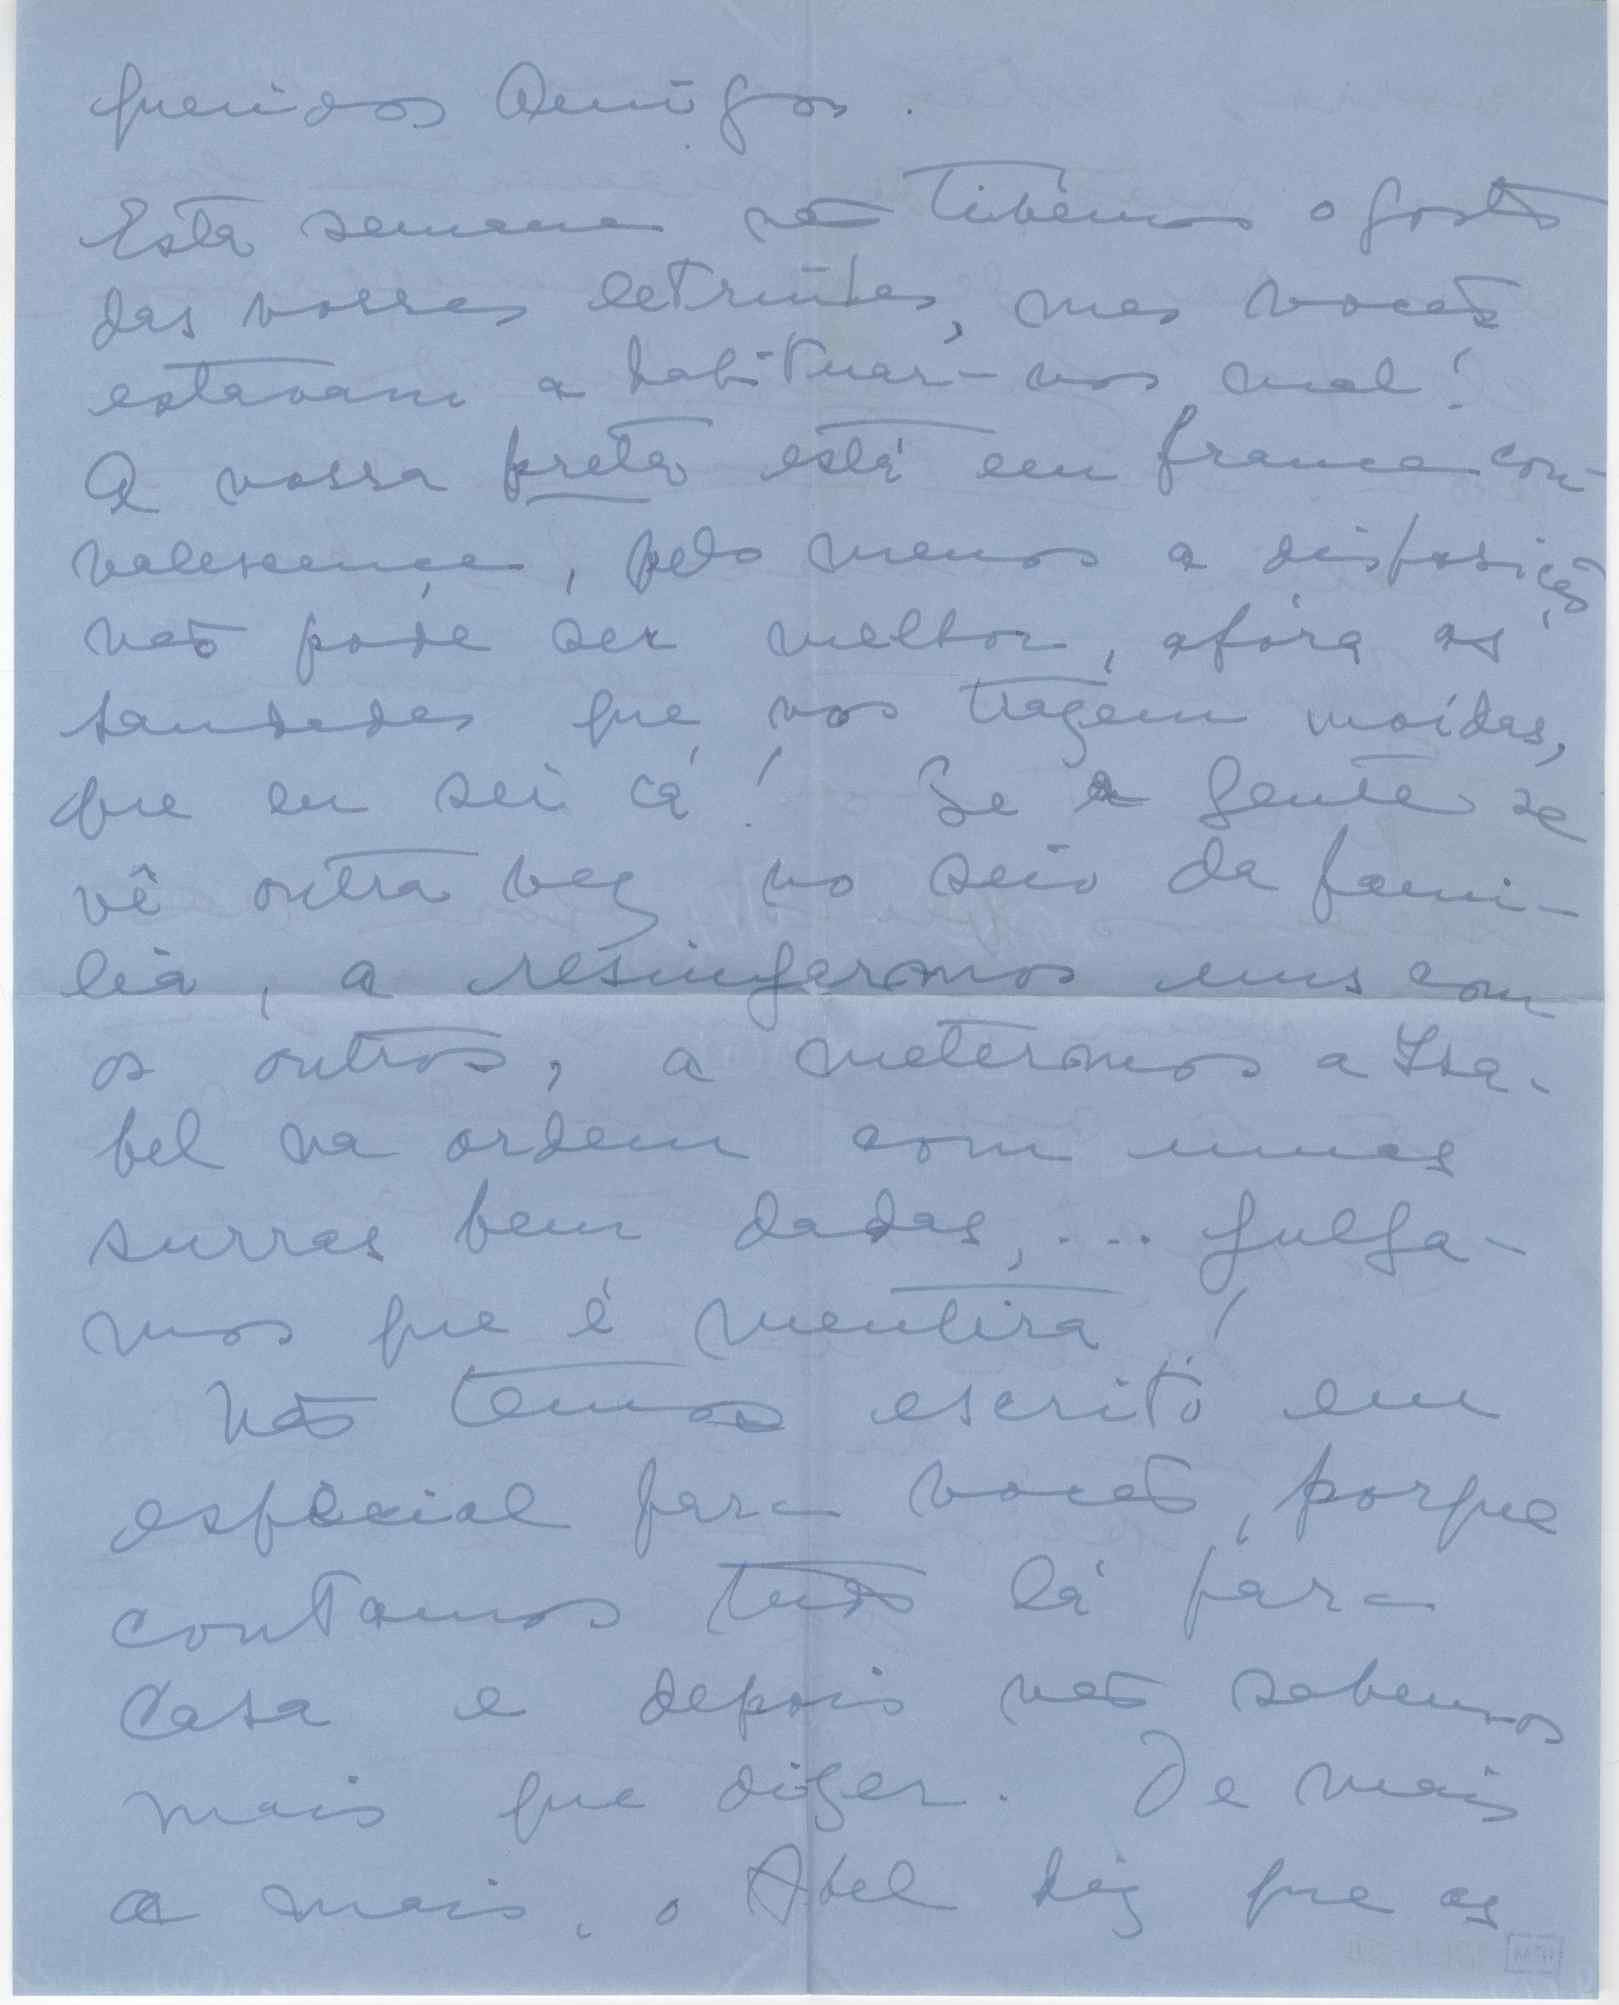 Queridos Amigos.
Esta semana não tibémos o gosto
das vossas letrinhas, mas vocês
estavam a habituar-nos mal!
A vossa preta está em franca con-
valescença, pelo menos a disposição
não pode ser melhor, afóra as
saudades que nos trazem moídas,
que eu sei cá! Se a gente se
vê outra vez no seio da famí-
lia, a resingarmos uns com
os outros, a metermos a Isa-
bel na ordem com umas
surras bem dadas, .... julga-
mos que é mentira!
Não temos escrito em
especial para vocês, porque
contamos tudo lá para
Casa e depois não sabemos
mais que dizer. De mais
a mais, o Abel diz que as